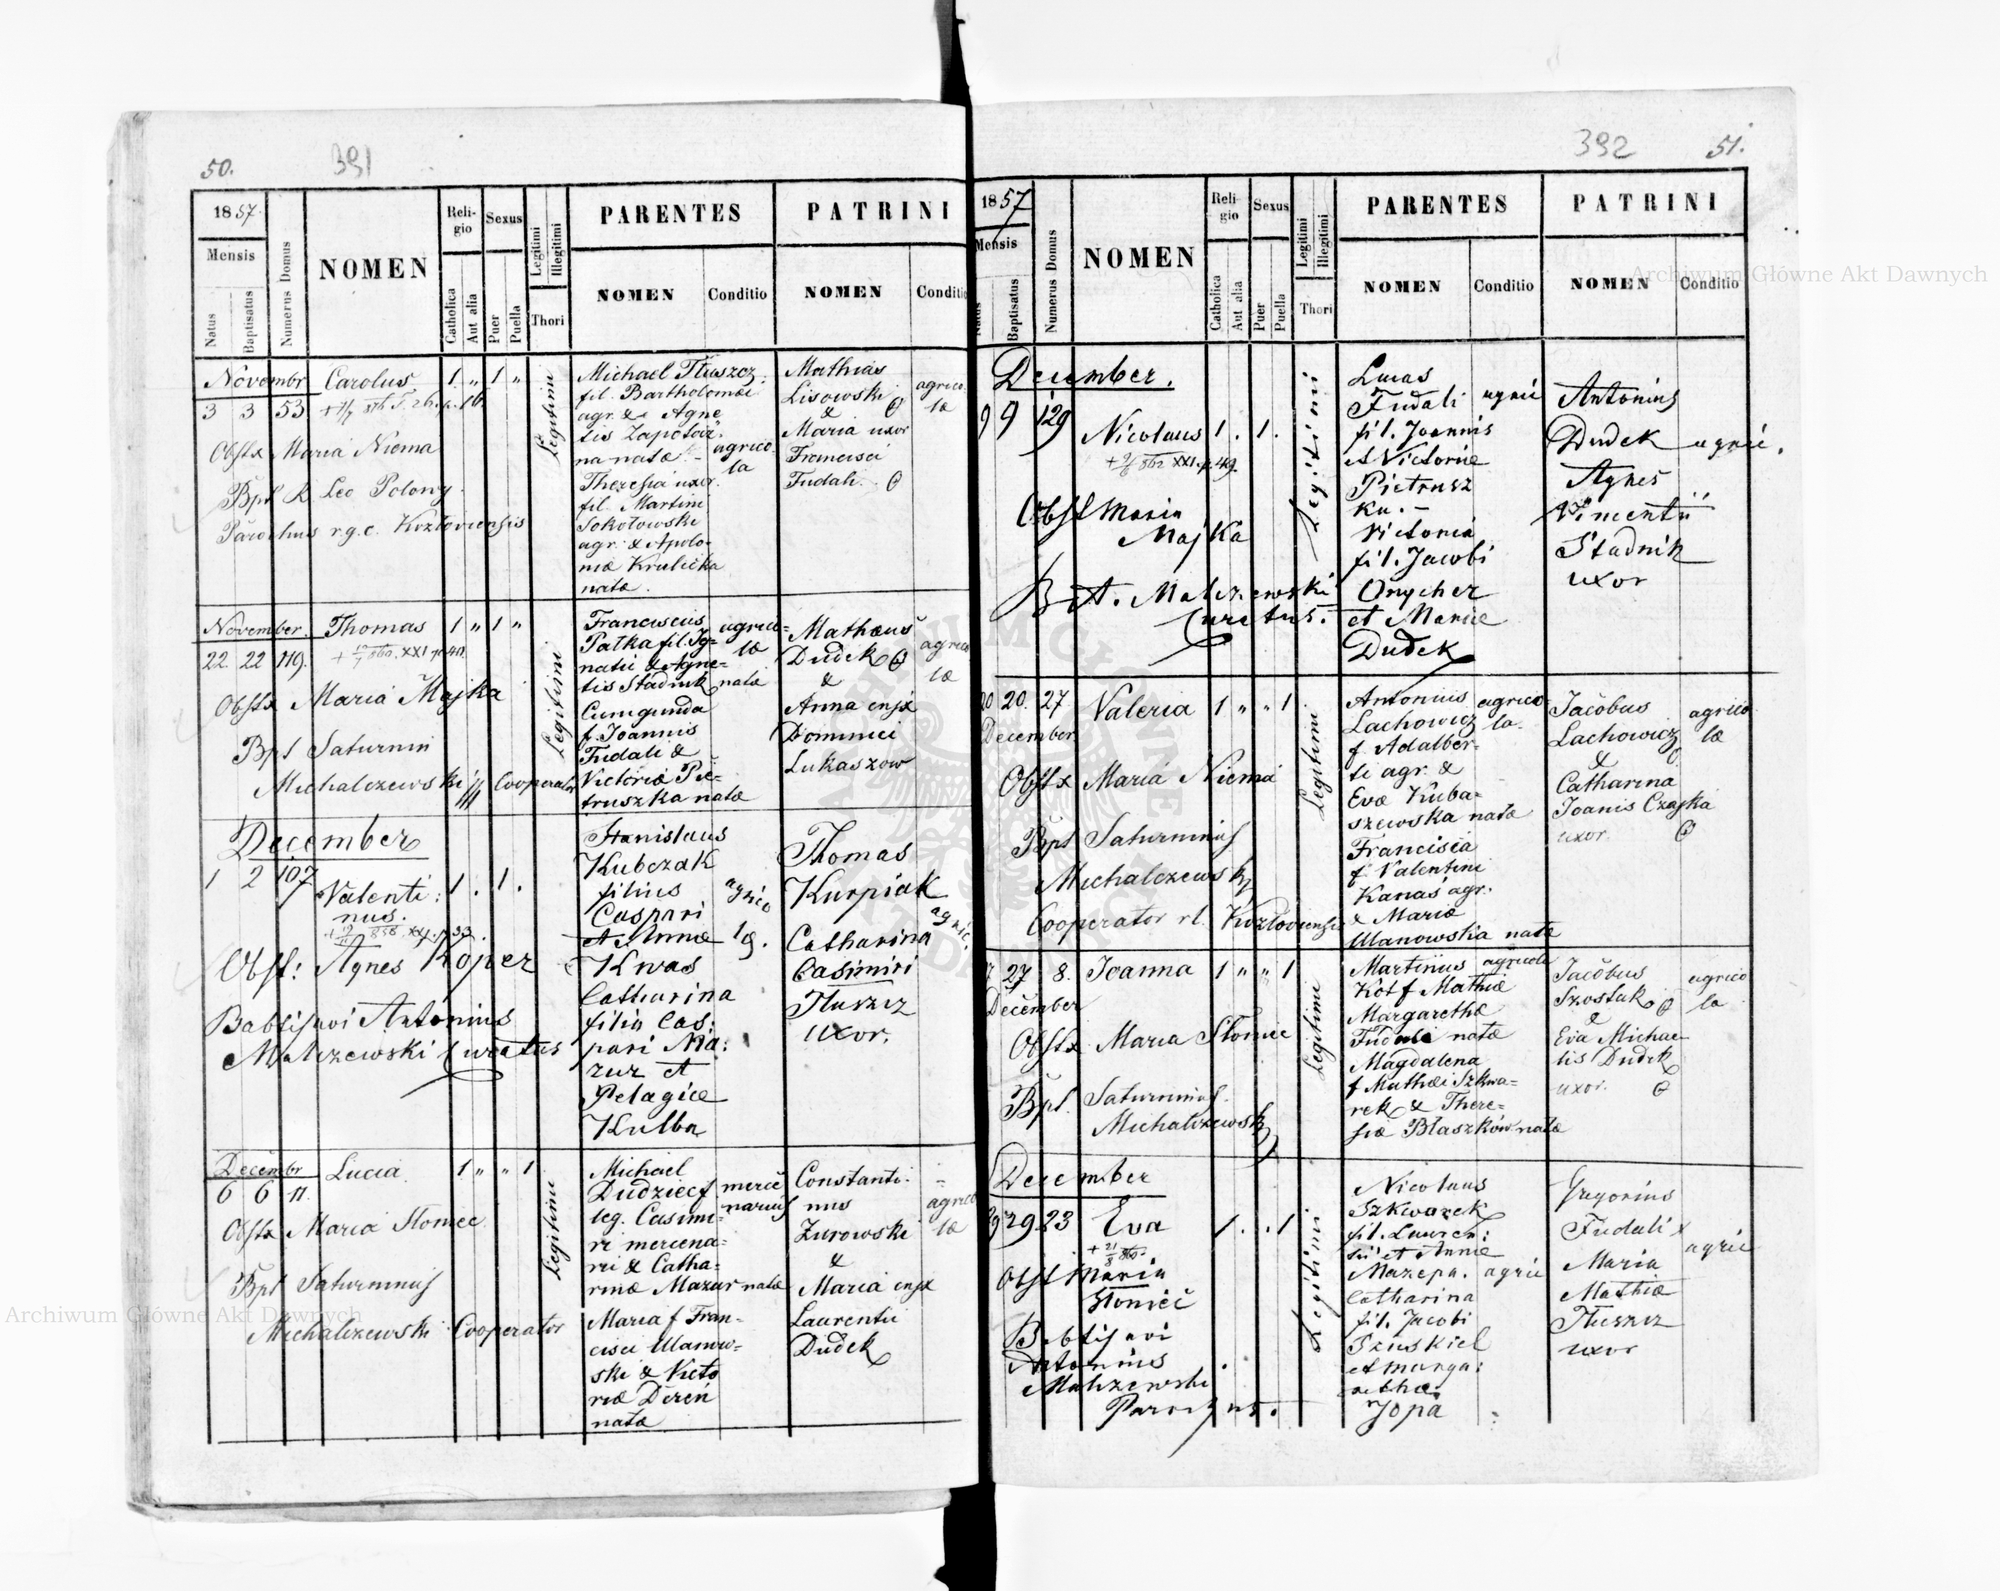 50.
391
1857.
Mensis
Natus
Baptisatus
Numerus Domus
NOMEN
Religio
Catholica
Aut alia
Sexus
Puer
Puella
Legitimi
Illegitimi
Thori
PARENTES
NOMEN
Conditio
PATRINI
NOMEN
Conditio
Novembr
3 3 53
Carolus.
1 „ 1 „
Obstx Maria Niema
Bpt R. Leo Polony
Parochus r.g.c. Kozloviensis
Legitimi
Michael Tłuszcz:
fil. Bartholomæi
agr. & Agne
tis Zapotocz.
na natæ -
agrico-
la
Theresia uxor.
fil. Martini
Sokołowski
agr. & Apolo-
niæ Krulicka
nata.
Mathias
Lisowski
&
Maria uxor
Francisci
Fudali.
agrico
læ
November.
22 22 119.
Thomas
1 „ 1 „
Obstx Maria Majka
Bpt Saturnin
Michalczewski Cooperator
Legitimi
Franciscus
Patka fil. Ig-
natii & Agne-
tis Stadnik natæ
Cunigunda
f. Joannis
Fudali &
Victoriæ Pie-
truszka natæ
agrico-
læ
Mathæus
Dudek
&
Anna cnjx
Dominici
Lukaszow
agrico
læ
December
1 2 107
Valenti:
nus.
1 . 1 .
Obst: Agnes Koper
Babtisavi Antonius
Malczewski Curatus
Stanislaus
Kubczak
filius
Caspari
et Annæ
Kwas
Catharina
filia Cas:
pari Ma:
zur et
Pelagiæ
Kulba
agrico
la.
Thomas
Kurpiak
Catharina
Casimiri
Tłuszcz
uxor.
agric.
Decembr
6 6 11.
Lucia
1 „ „ 1
Obstx Maria Słomec
Bpt Saturninus
Michalczewski Cooperator
Legitimi
Michael
Dudzic f
leg. Casimi-
ri mercena-
rii & Catha-
rinæ Mazur natæ
Maria f Fran-
cisci Ulanow-
ski & Victo
riæ Dereń
natæ
merce
narius
Constanti-
nus
Zurowski
&
Maria cnjx
Laurentii
Dudek
agrico
læ
392
51.
1857
Mensis
Natus
Baptisatus
Numerus Domus
NOMEN
Religio
Catholica
Aut alia
Sexus
Puer
Puella
Legitimi
Illegitimi
Thori
PARENTES
NOMEN
Conditio
PATRINI
NOMEN
Conditio
December.
9 9 129
Nicolaus
1 . 1.
Obst Maria
Majka
B. A. Malczewski
Curatus.
Legitimi
Lucas
Fudali
fil. Joannis
et Victoriæ
Pietrusz
ka. -
Victoria
fil. Jacobi
Onycher
et Mariæ
Dudek
agric
Antonius
Dudek
Agnes
Vincentii
Stadnik
uxor
agric.
20 20. 27
December
Valeria
1 „ „ 1
Obstx Maria Niema
Bpt Saturninus
Michalczewski
Cooperator rl. Kozloviensis
Legitimi
Antonius
Lachowicz
f. Adalber-
ti agr. &
Evæ Kuba-
szewska natæ
Francisca
f. Valentini
Kanas agr.
& Mariæ
Ulanowska natæ
agrico-
la.
Jacobus
Lachowicz
&
Catharina
Joanis Czajka
uxor.
agrico
læ
27 8.
December
Joanna
1 „ „ 1
Obstx Maria Słomec
Bpt. Saturninus.
Michalczewski
Legitimi
Martinus
Kot f Mathiæ
Margarethæ
Fudali natæ
Magdalena
f Mathæi Szkwa-
rek & There-
siæ Błaszków natæ
agricola
Jacobus
Szostak
&
Eva Michae
lis Dudek
uxor.
agrico
la
December
29 29. 23
Eva
1 . . 1
Obst Maria
Słomiec
Babtisavi
Antonius
Malczewski
Parochus.
Legitimi
Nicolaus
Szkwarek
fil. Lauren:
tii et Annæ
Mazepa.
Catharina
fil. Jacobi
et Marga:
rethæ
Jopa
agric
Gregorius
Fudali
Maria
Mathiæ
Tłuszcz
uxor
agric
Archiwum Główne Akt Dawnych
Archiwum Główne Akt Dawnych